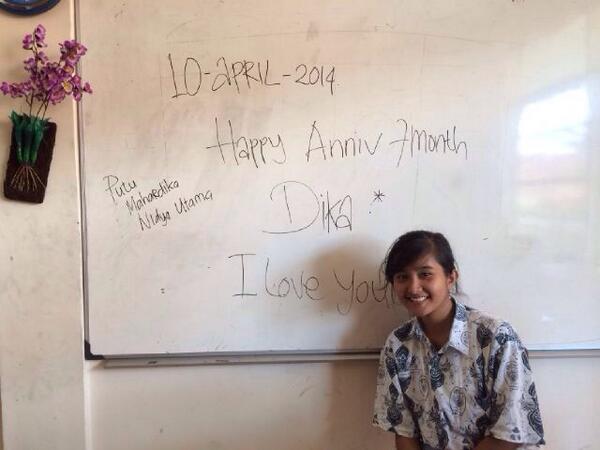 10-APRIL-2014
Happy Anniv 7month
Putu
Mahardika
Nidya Utama
Dika *
I Love you!